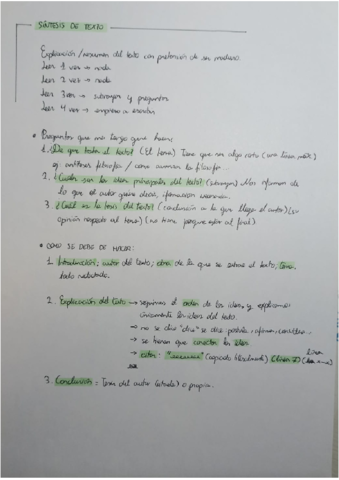 SÍNTESIS DE TEXTO
Explicación / resumen del texto con pretensión de ser maduro.
Leer 1 vez → nada
Leer 2 vez → nada
Leer 3 vez → subrayar y preguntas
Leer 4 vez → empiezo a escribir
• Preguntas que me tengo que hacer:
1. ¿De que trata el texto? (El tema) Tiene que ser algo corto (una línea,
ej. filosofía / como la filosofía...
2. ¿Cuales son las ideas principales del texto? (subrayar) Nos informan de
lo que el autor quiere decir,
3. ¿Cuál es la tesis del texto? (conclusión a la que llega el autor) (su
opinión respecto al tema) (no tiene porque estar al final)
• COMO SE DEBE DE HACER:
1. Introducción; autor del texto, obra de la que se extrae el texto, tema.
todo redactado.
2. Explicación del texto → seguimos el orden de las ideas, y explicamos
únicamente las ideas del texto.
→ no se dice "dice" se dice postula, afirma, considera...
→ se tienen que conectar las ideas
→ citar: (copiado literalmente) (línea 7)
3. Conclusión: Tesis del autor o propia.